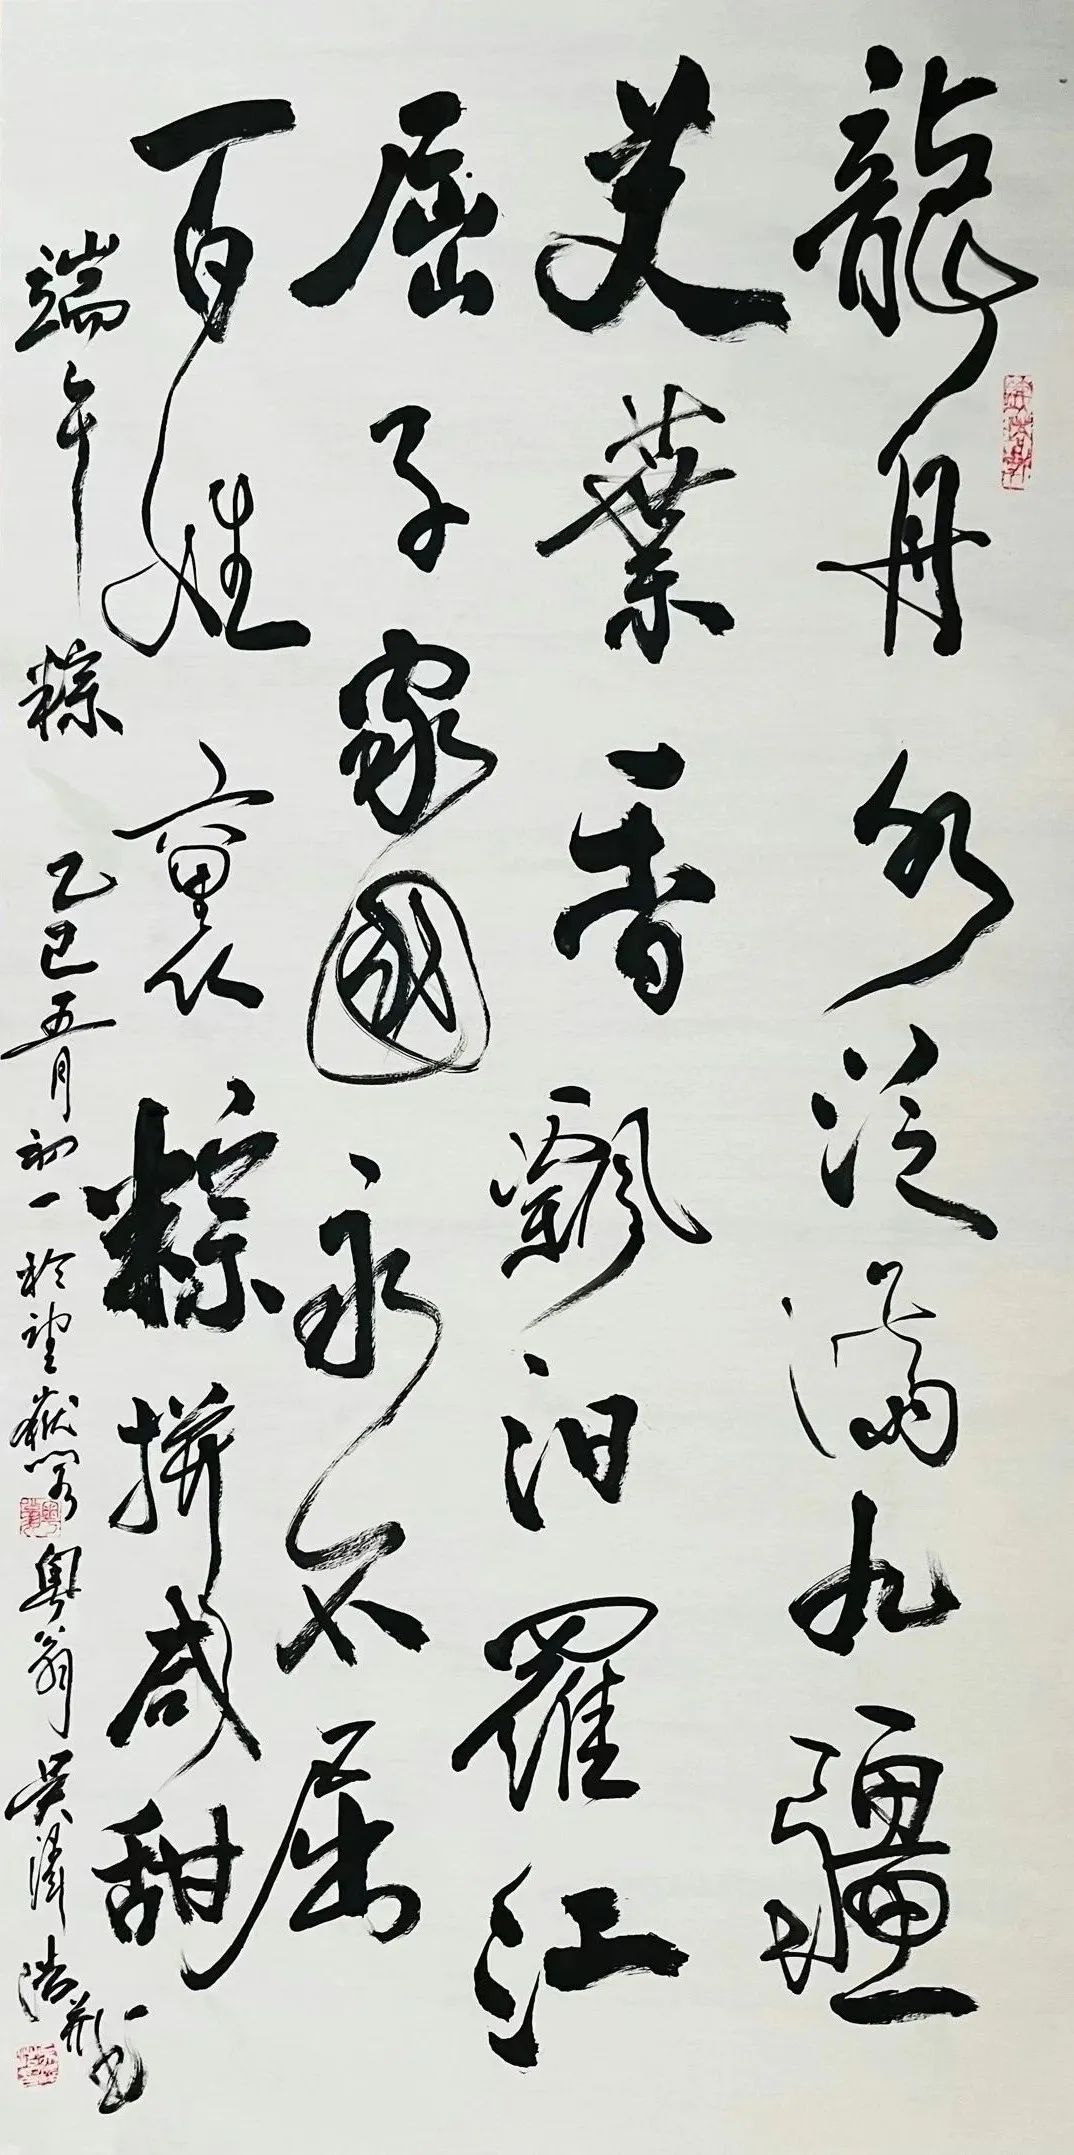 龍舟水泛滿九疆
艾葉香飄汨羅江
屈子家國永不屈
百姓裹粽拼咸甜
端午粽 乙巳五月初一於望嶽閣 粵翁吳澤浩并書